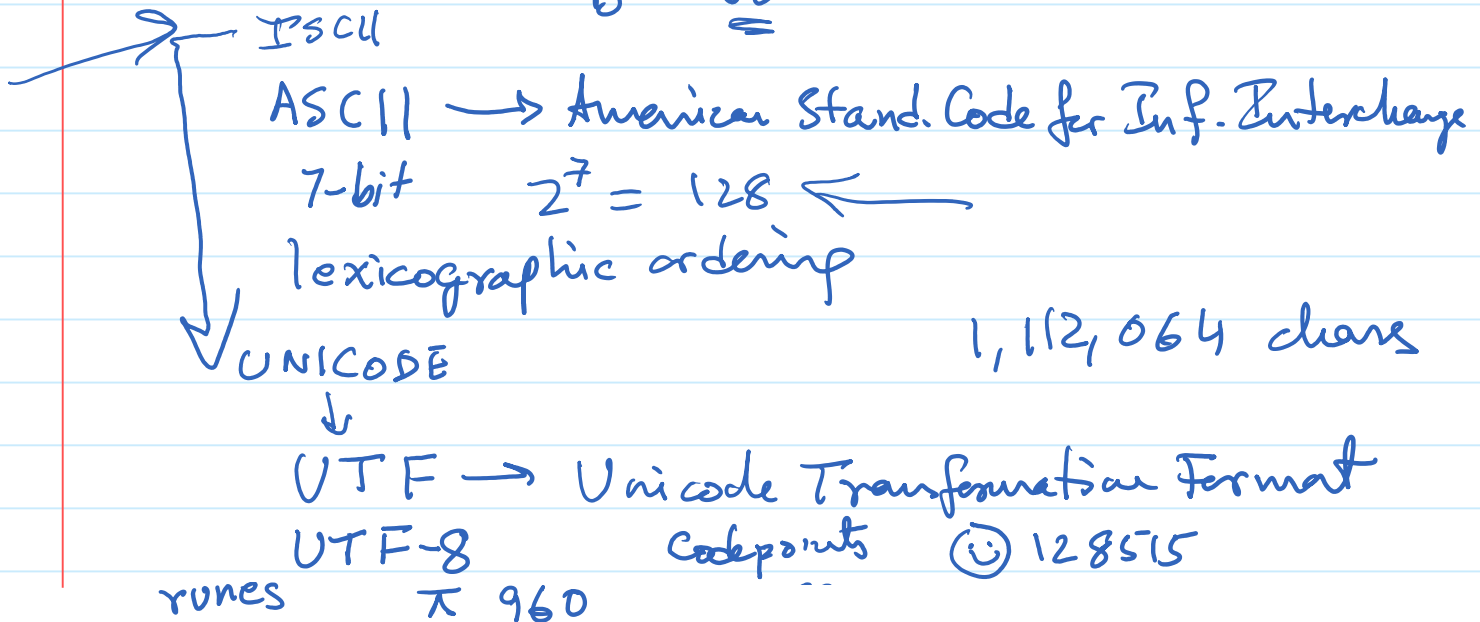 ISCII
ASCII → American Stand. Code for Inf. Interchange
7-bit 2^7 = 128 ←
lexicographic ordering
1,112,064 chars
UNICODE
↓
UTF → Unicode Transformation Format
UTF-8 Codepoints ☺ 128515
runes π 960